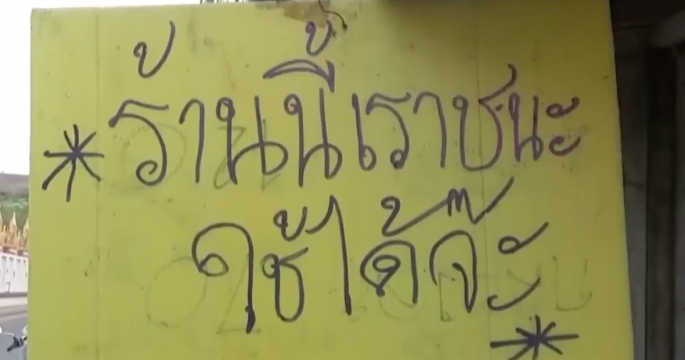 *ร้านนี้เราชนะ
ใช้ได้จ๊ะ*